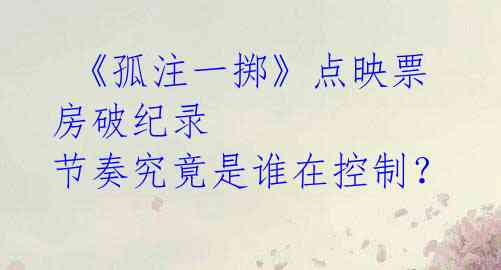 《孤注一掷》点映票
房破纪录
节奏究竟是谁在控制？